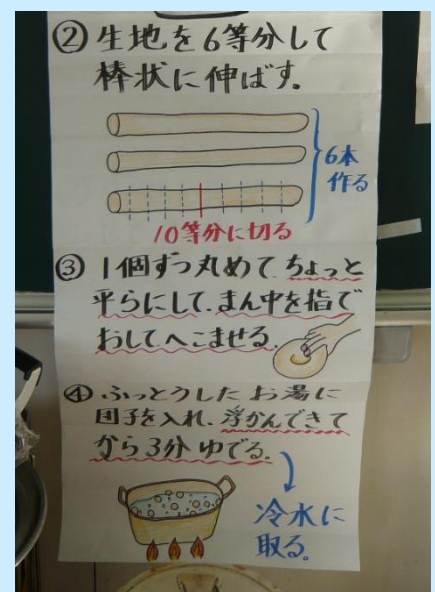 ②生地を6等分して
棒状に伸ばす。
6本
作る
10等分に切る
③1個ずつ丸めてちょっと
平らにして、まん中を指で
おしてへこませる。
④ふっとうしたお湯に
団子を入れ、浮かんできて
から3分ゆでる。
冷水に
取る。